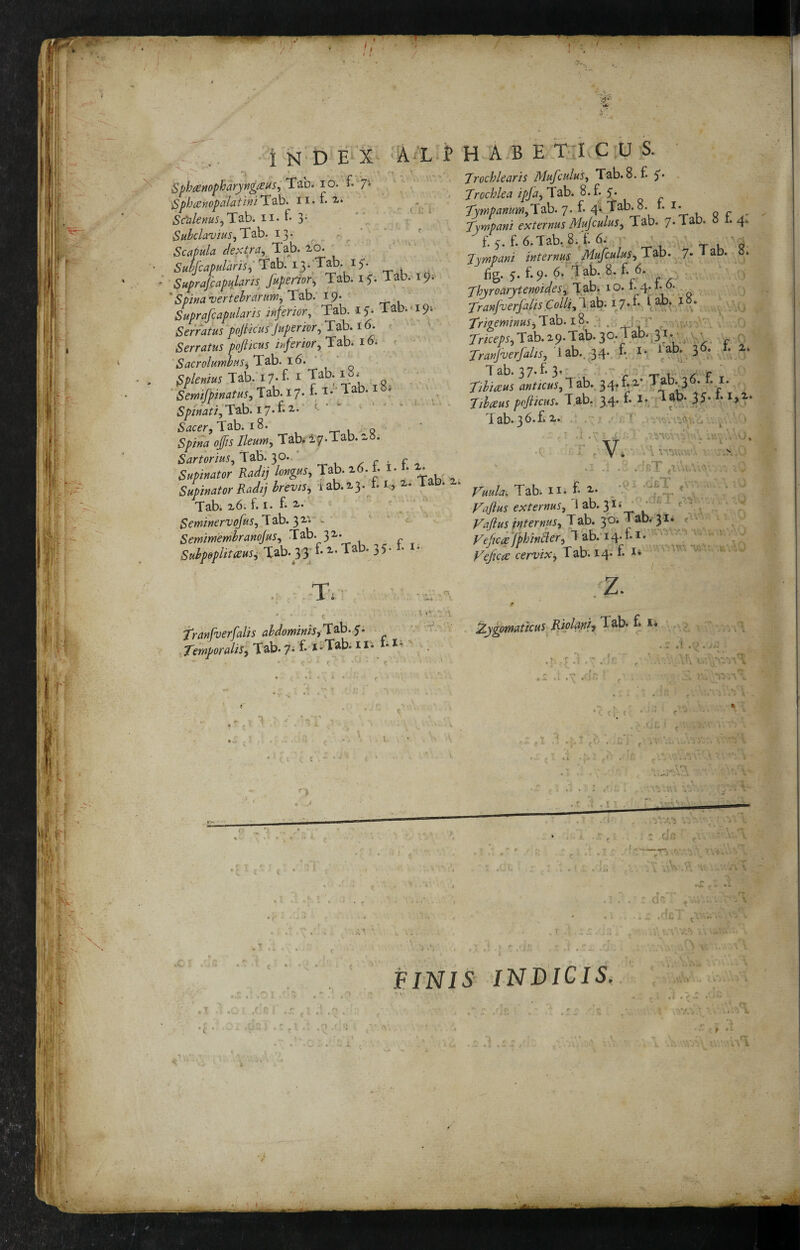 INDEX ALPHABETICUS.
Sphænopharyngæus, Tab. 10. f. 7.
Sphænopalatini Tab. 11. f. 2.
Scalenus, Tab. 11. f. 3.
Subclavius, Tab. 13.
Scapula dextra, Tab. 20.
Subscapularis, Tab. 13. Tab. 15.
Suprascapularis superior, Tab. 15. Tab. 19.
Spina vertebrarum, Tab. 19.
Suprascapularis inferior, Tab. 15. Tab. 19.
Serratus posticus superior, Tab. 16.
Serratus posticus inferior, Tab. 16.
Sacrolumbus, Tab. 16.
Splenius Tab. 17. f. 1 Tab. 18.
Semispinatus, Tab. 17. f. 1. Tab. 18.
Spinati, Tab. 17. f. 2.
Sacer, Tab. 18.
Spina ossis Ileum, Tab. 27. Tab. 28.
Sartorius, Tab. 30.
Supinator Radij longus, Tab. 26. f. 1. f. 2.
Supinator Radij brevis, Tab. 23. f. 1, 2. Tab. 2.
Tab. 26. f. 1. f. 2.
Seminervosus, Tab. 32.
Semimembranosus, Tab. 32.
Subpoplitæus, Tab. 33 f. 2. Tab. 35. f. 1.
T.
Transversalis abdominis, Tab. 5.
Temporalis, Tab. 7. f. 1. Tab. 11. f. 1.
Trochlearis Musculus, Tab. 8. f. 5.
Trochlea ipsa, Tab. 8. f. 5.
Tympanum, Tab. 7. f. 4. Tab. 8. f. 1.
Tympani externus Musculus, Tab. 7. Tab. 8 f. 4.
f. 5. f. 6. Tab. 8. f. 6.
Tympani internus Musculus, Tab. 7. Tab. 8.
fig. 5. f. 9. 6. Tab. 8. f. 6.
Thyroarytenoides, Tab. 10. f. 4. f. 6.
Transversalis Colli, Tab. 17. f. Tab. 18.
Trigeminus, Tab. 18.
Triceps, Tab. 29. Tab. 30. Tab. 31.
Transversalis, Tab. 34. f. 1. Tab. 36. f. 2.
Tab. 37. f. 3.
Tibiæus anticus, Tab. 34. f. 2. Tab. 36. f. 1.
Tibæus posticus. Tab. 34. f. 1. Tab. 35. f. 1, 2.
Tab. 36. f. 2.
V.
Vuula. Tab. 11. f. 2.
Vastus externus, Tab. 31.
Vastus internus, Tab. 30. Tab. 31.
Vesicæ sphincter, Tab. 14. f. 1.
Vesicæ cervix, Tab. 14. f. 1.
Z.
Zygomaticus Riolani, Tab. f. 1.
FINIS INDICIS.